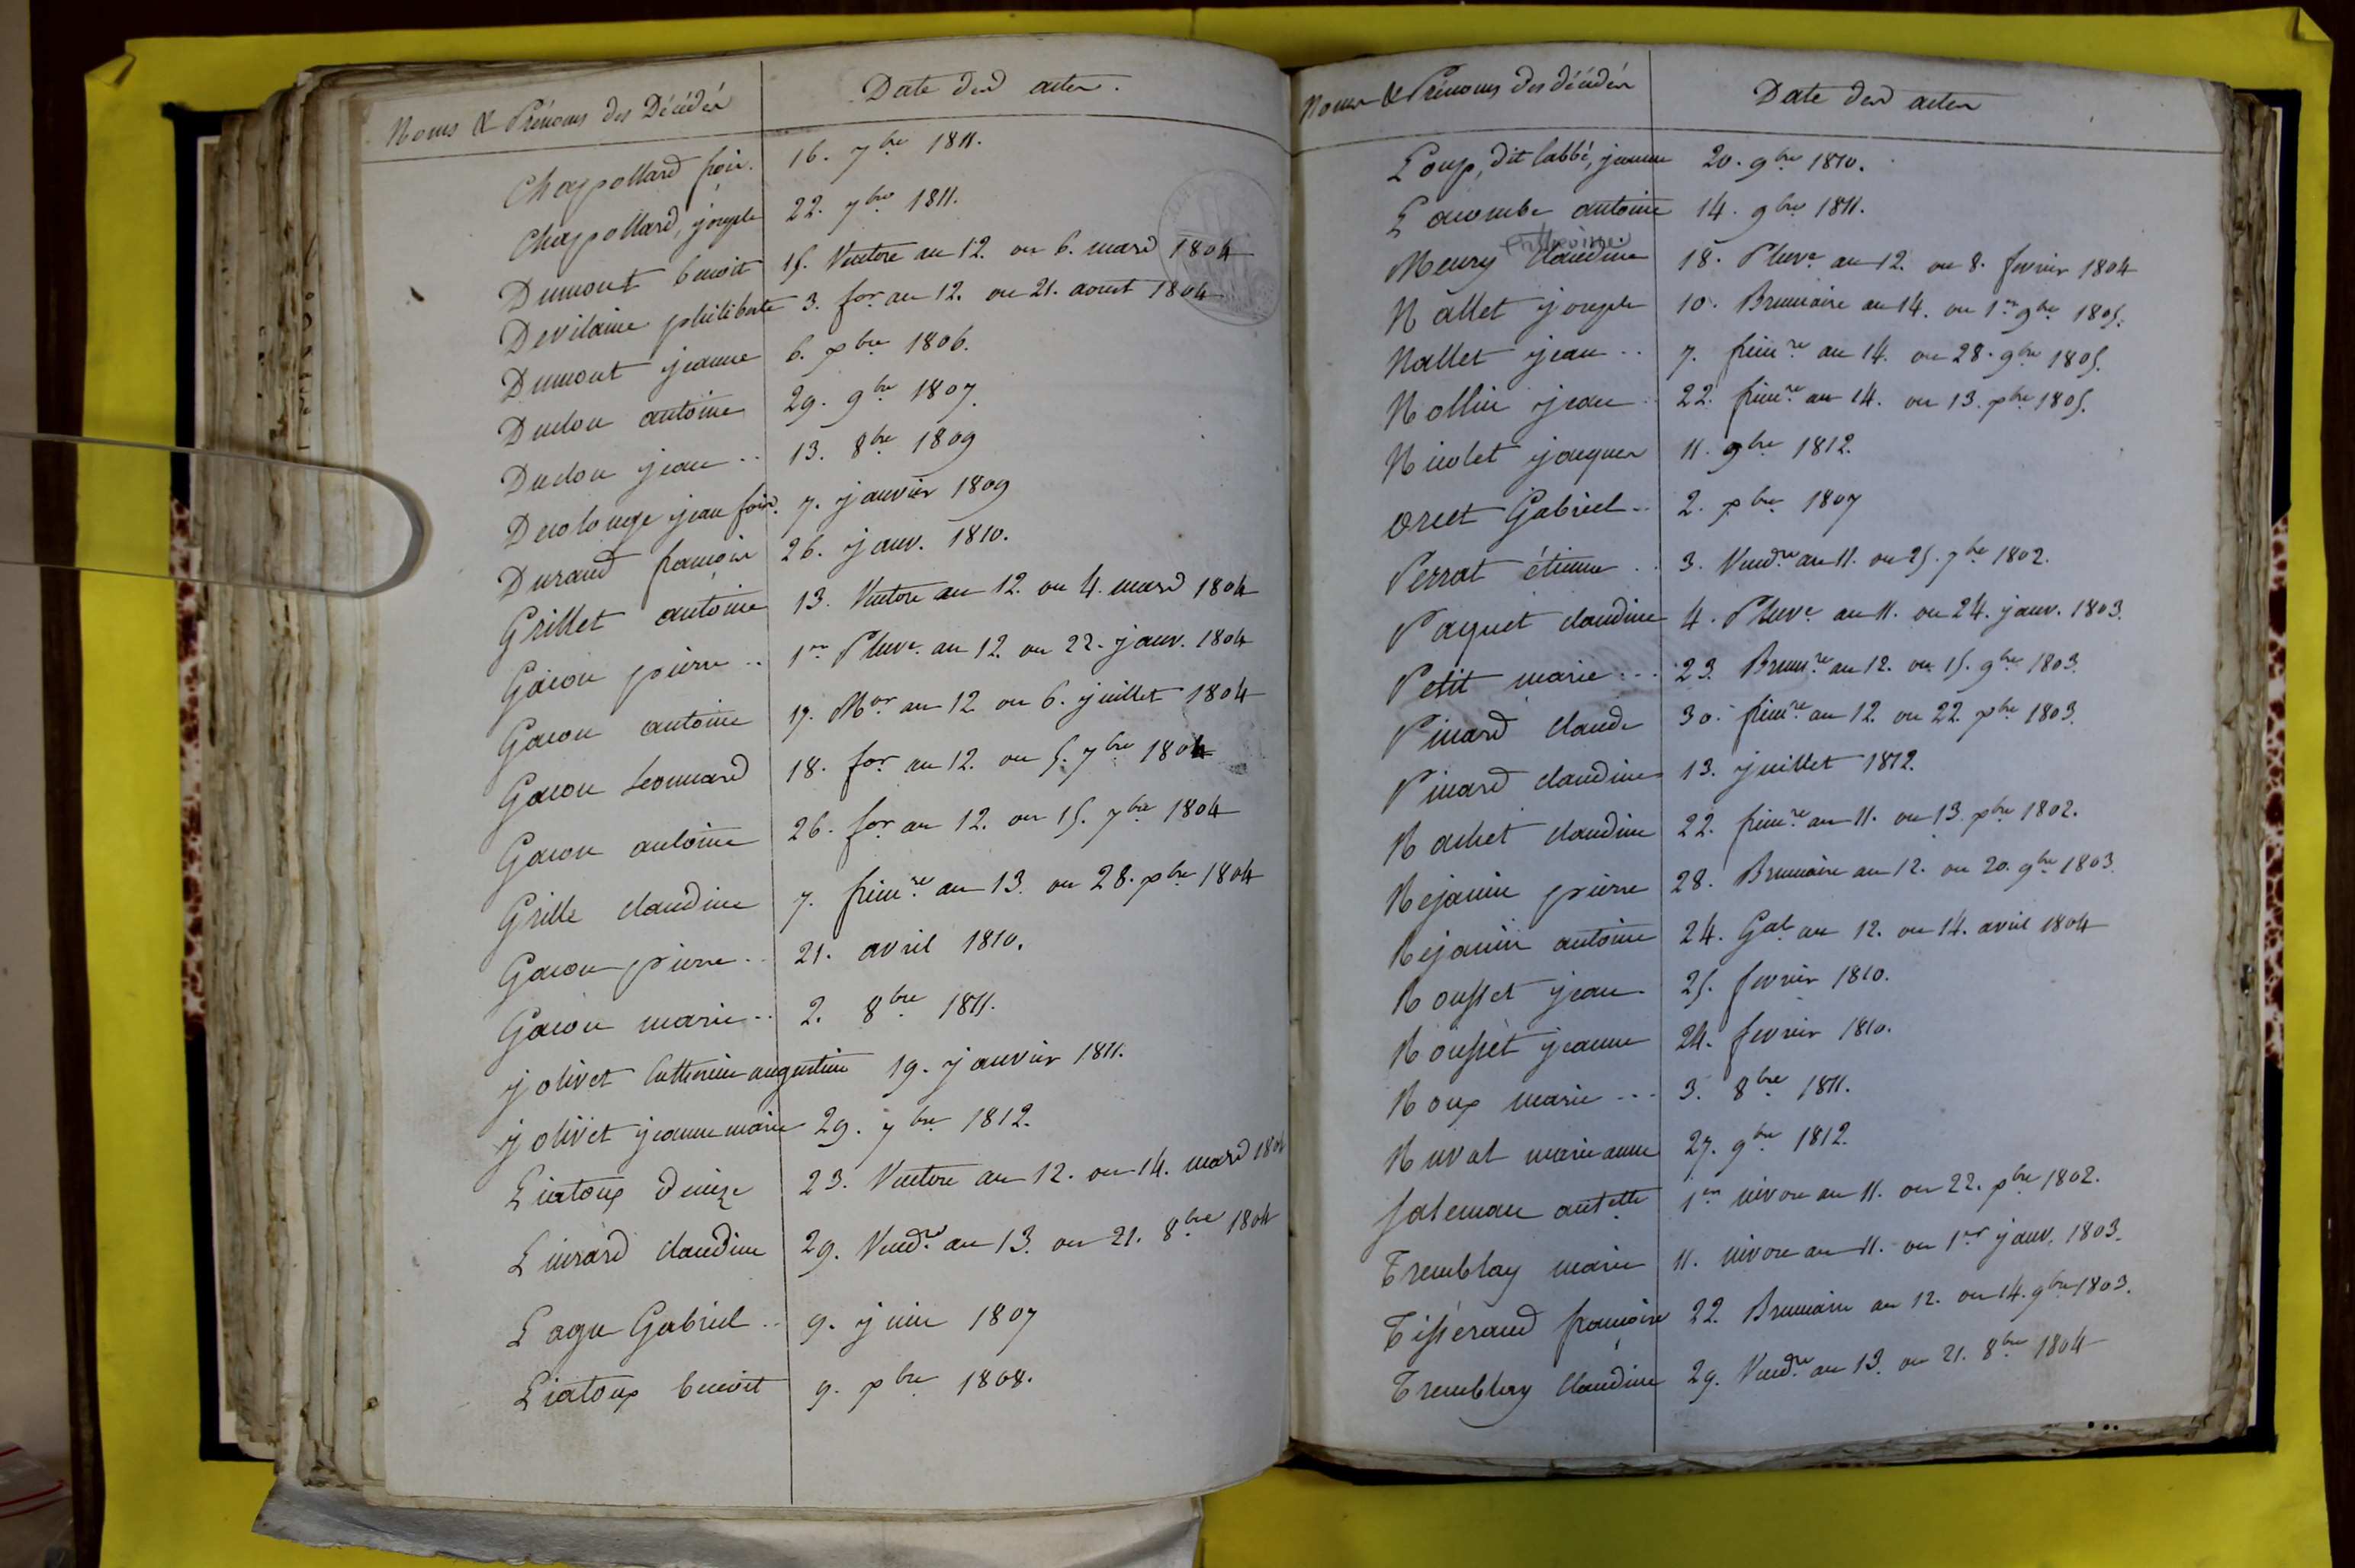 Noms & Prénoms des Décédés Date des actes.
Chapollard fois. 16. 7bre 1811.
Chapollard, joseph 22. 7bre 1811.
Dumont benoit 15. Ventose an 12. ou 6. mars 1804
Devilaine philiberte 3. for an 12. ou 21. aoust 1804
Dumont jeanne 6. xbre 1806.
Duclou antoine 29. 9bre 1807.
Duclou jean .. 13. 8bre 1809
Decolonge jean fois. 7. janvier 1809
Durand françois 26. janv. 1810.
Grillet antoine 13. Ventose an 12. ou 4. mars 1804
Gacon pierre .. 1er Pluve. an 12. ou 22. janv. 1804
Gacon antoine 17. Mor an 12 ou 6. juillet 1804
Gacon Leonnard 18. for an 12. ou 5. 7bre 1804
Gacon antoine 26. for an 12. ou 15. 7bre 1804
Grille claudine 7. frimre an 13. ou 28. xbre 1804
Gacon pierre .. 21. avril 1810.
Gacon marie .. 2. 8bre 1811.
jolivet Catherine augustine 19. janvier 1811.
jolivet jeanne marie 29. 7bre 1812.
Liatoux denize 23. Ventose an 12. ou 14. mars 1804
Livrard claudine 29. Vendre an 13. ou 21. 8bre 1804
Lagu Gabriel .. 9. juin 1807
Liatoux benoit 9. xbre 1808.
Noms & Prénoms des décédés Date des actes
Loup, dit labbé, jeanne 20. 9bre 1810.
Lacombe antoine 14. 9bre 1811.
Meury claudine 18. Pluve an 12. ou 8. fevrier 1804
Nallet joseph 10. Brumaire an 14. ou 1er 9bre 1805.
Nallet jean .. 7. frimre an 14. ou 28. 9bre 1805.
Nollin jean 22. frimre an 14. ou 13. xbre 1805.
Nicolet jacques 11. 9bre 1812.
Orcet Gabriel .. 2. xbre 1807
Perrat étienne .. 3. Vendre an 11. ou 25. 7bre 1802.
Paquet claudine 4. Pluve an 11. ou 24. janv. 1803.
Petit marie ... 23. Brumre an 12. ou 15. 9bre 1803.
Pinard claude 30. frimre an 12. ou 22. xbre 1803.
Pinard claudine 13. juillet 1812.
Rachet claudine 22. frimre an 11. ou 13. xbre 1802.
Rejanin pierre 28. Brumaire an 12. ou 20. 9bre 1803.
Rejanin antoine 24. Gal an 12. ou 14. avril 1804
Rousset jean. 25. fevrier 1810.
Rousset jeanne 24. fevrier 1810.
Roux marie ... 3. 8bre 1811.
Ruvat marie anne 27. 9bre 1812.
Saleman antette 1er nivose an 11. ou 22. xbre 1802.
Tremblay marie 11. nivose an 11. ou 1er janv. 1803.
Tisserand françoise 22. Brumaire an 12. ou 14. 9bre 1803.
Tremblay Claudine 29. Vendre an 13. ou 21. 8bre 1804